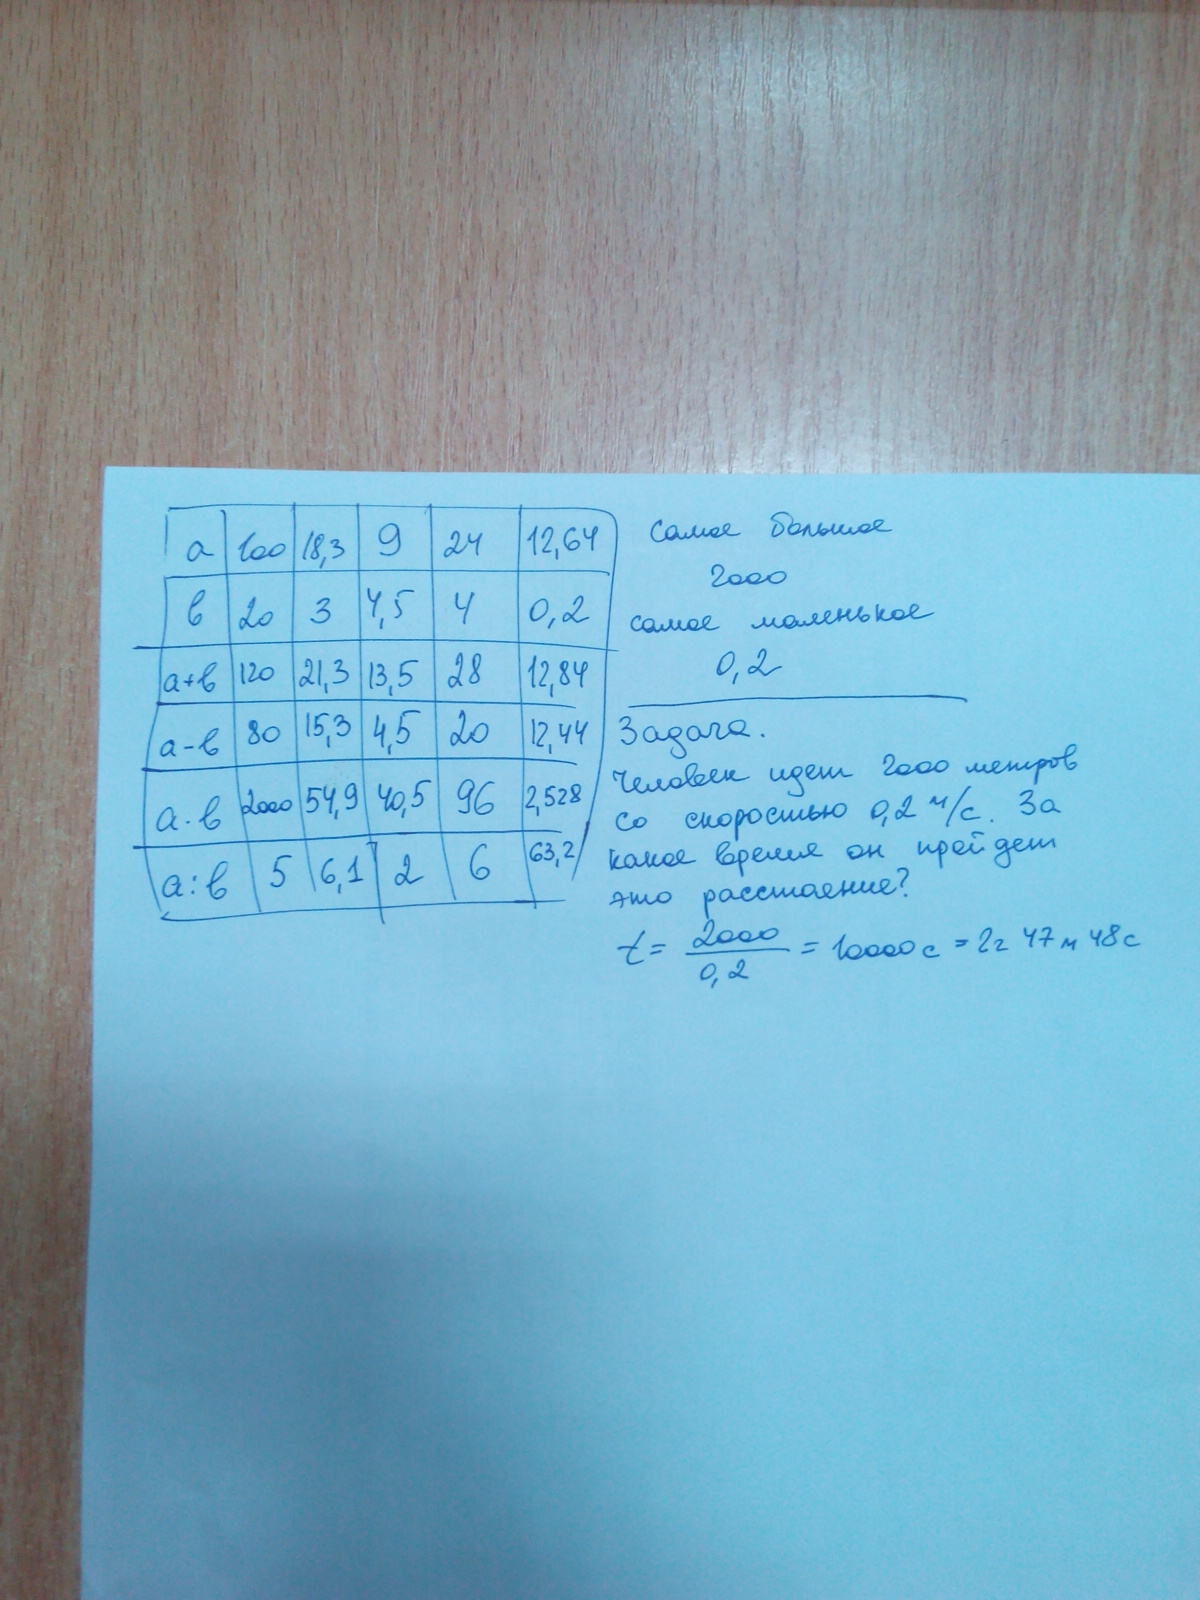 а 100 18,3 9 24 12,64
в 20 3 4,5 4 0,2
а+в 120 21,3 13,5 28 12,84
а-в 80 15,3 4,5 20 12,44
а·в 2000 54,9 40,5 96 2,528
а:в 5 6,1 2 6 63,2
самое большое
2000
самое маленькое
0,2
Задача.
Человек идет 2000 метров
со скоростью 0,2 м/с. За
какое время он пройдет
это расстаение?
t = 2000/0,2 = 10000 с = 2г 47 м 48 с